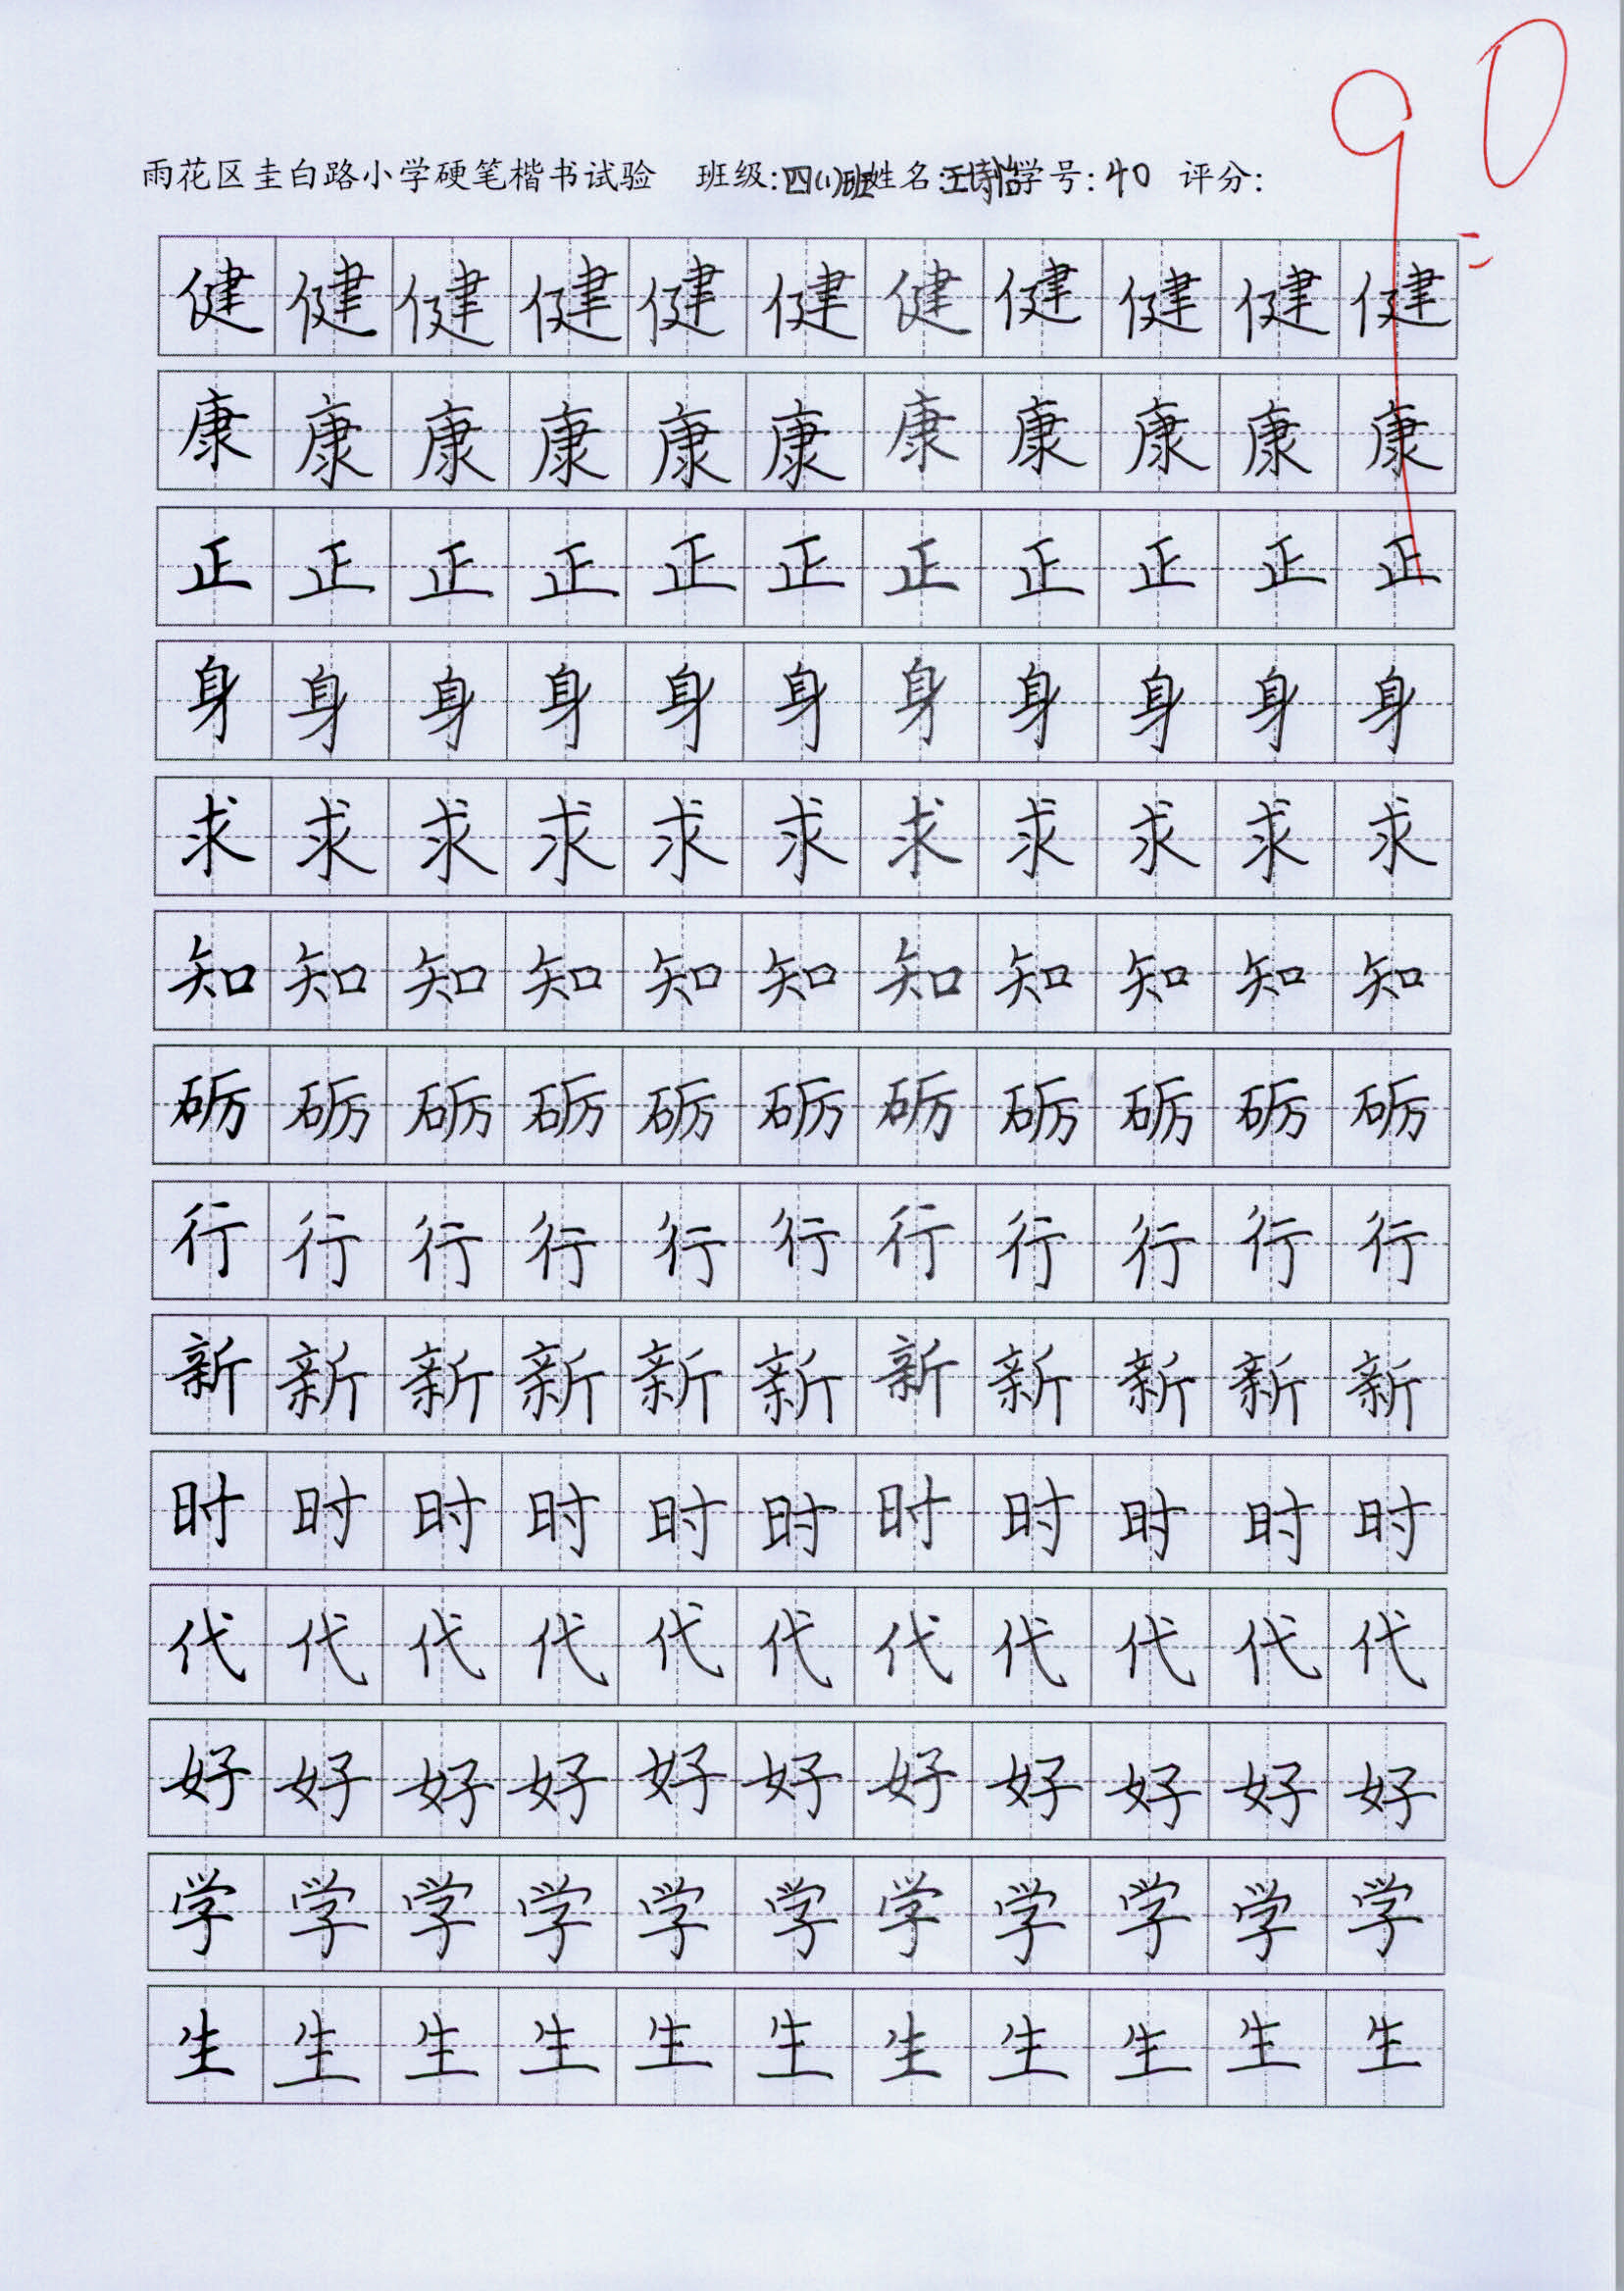 雨花区圭白路小学硬笔楷书试验 班级:四(1)班姓名:王诗怡学号:40 评分:
90
健健健健健健健健健健健
康康康康康康康康康康康
正正正正正正正正正正正
身身身身身身身身身身身
求求求求求求求求求求求
知知知知知知知知知知知
砺砺砺砺砺砺砺砺砺砺砺
行行行行行行行行行行行
新新新新新新新新新新新
时时时时时时时时时时时
代代代代代代代代代代代
好好好好好好好好好好好
学学学学学学学学学学学
生生生生生生生生生生生